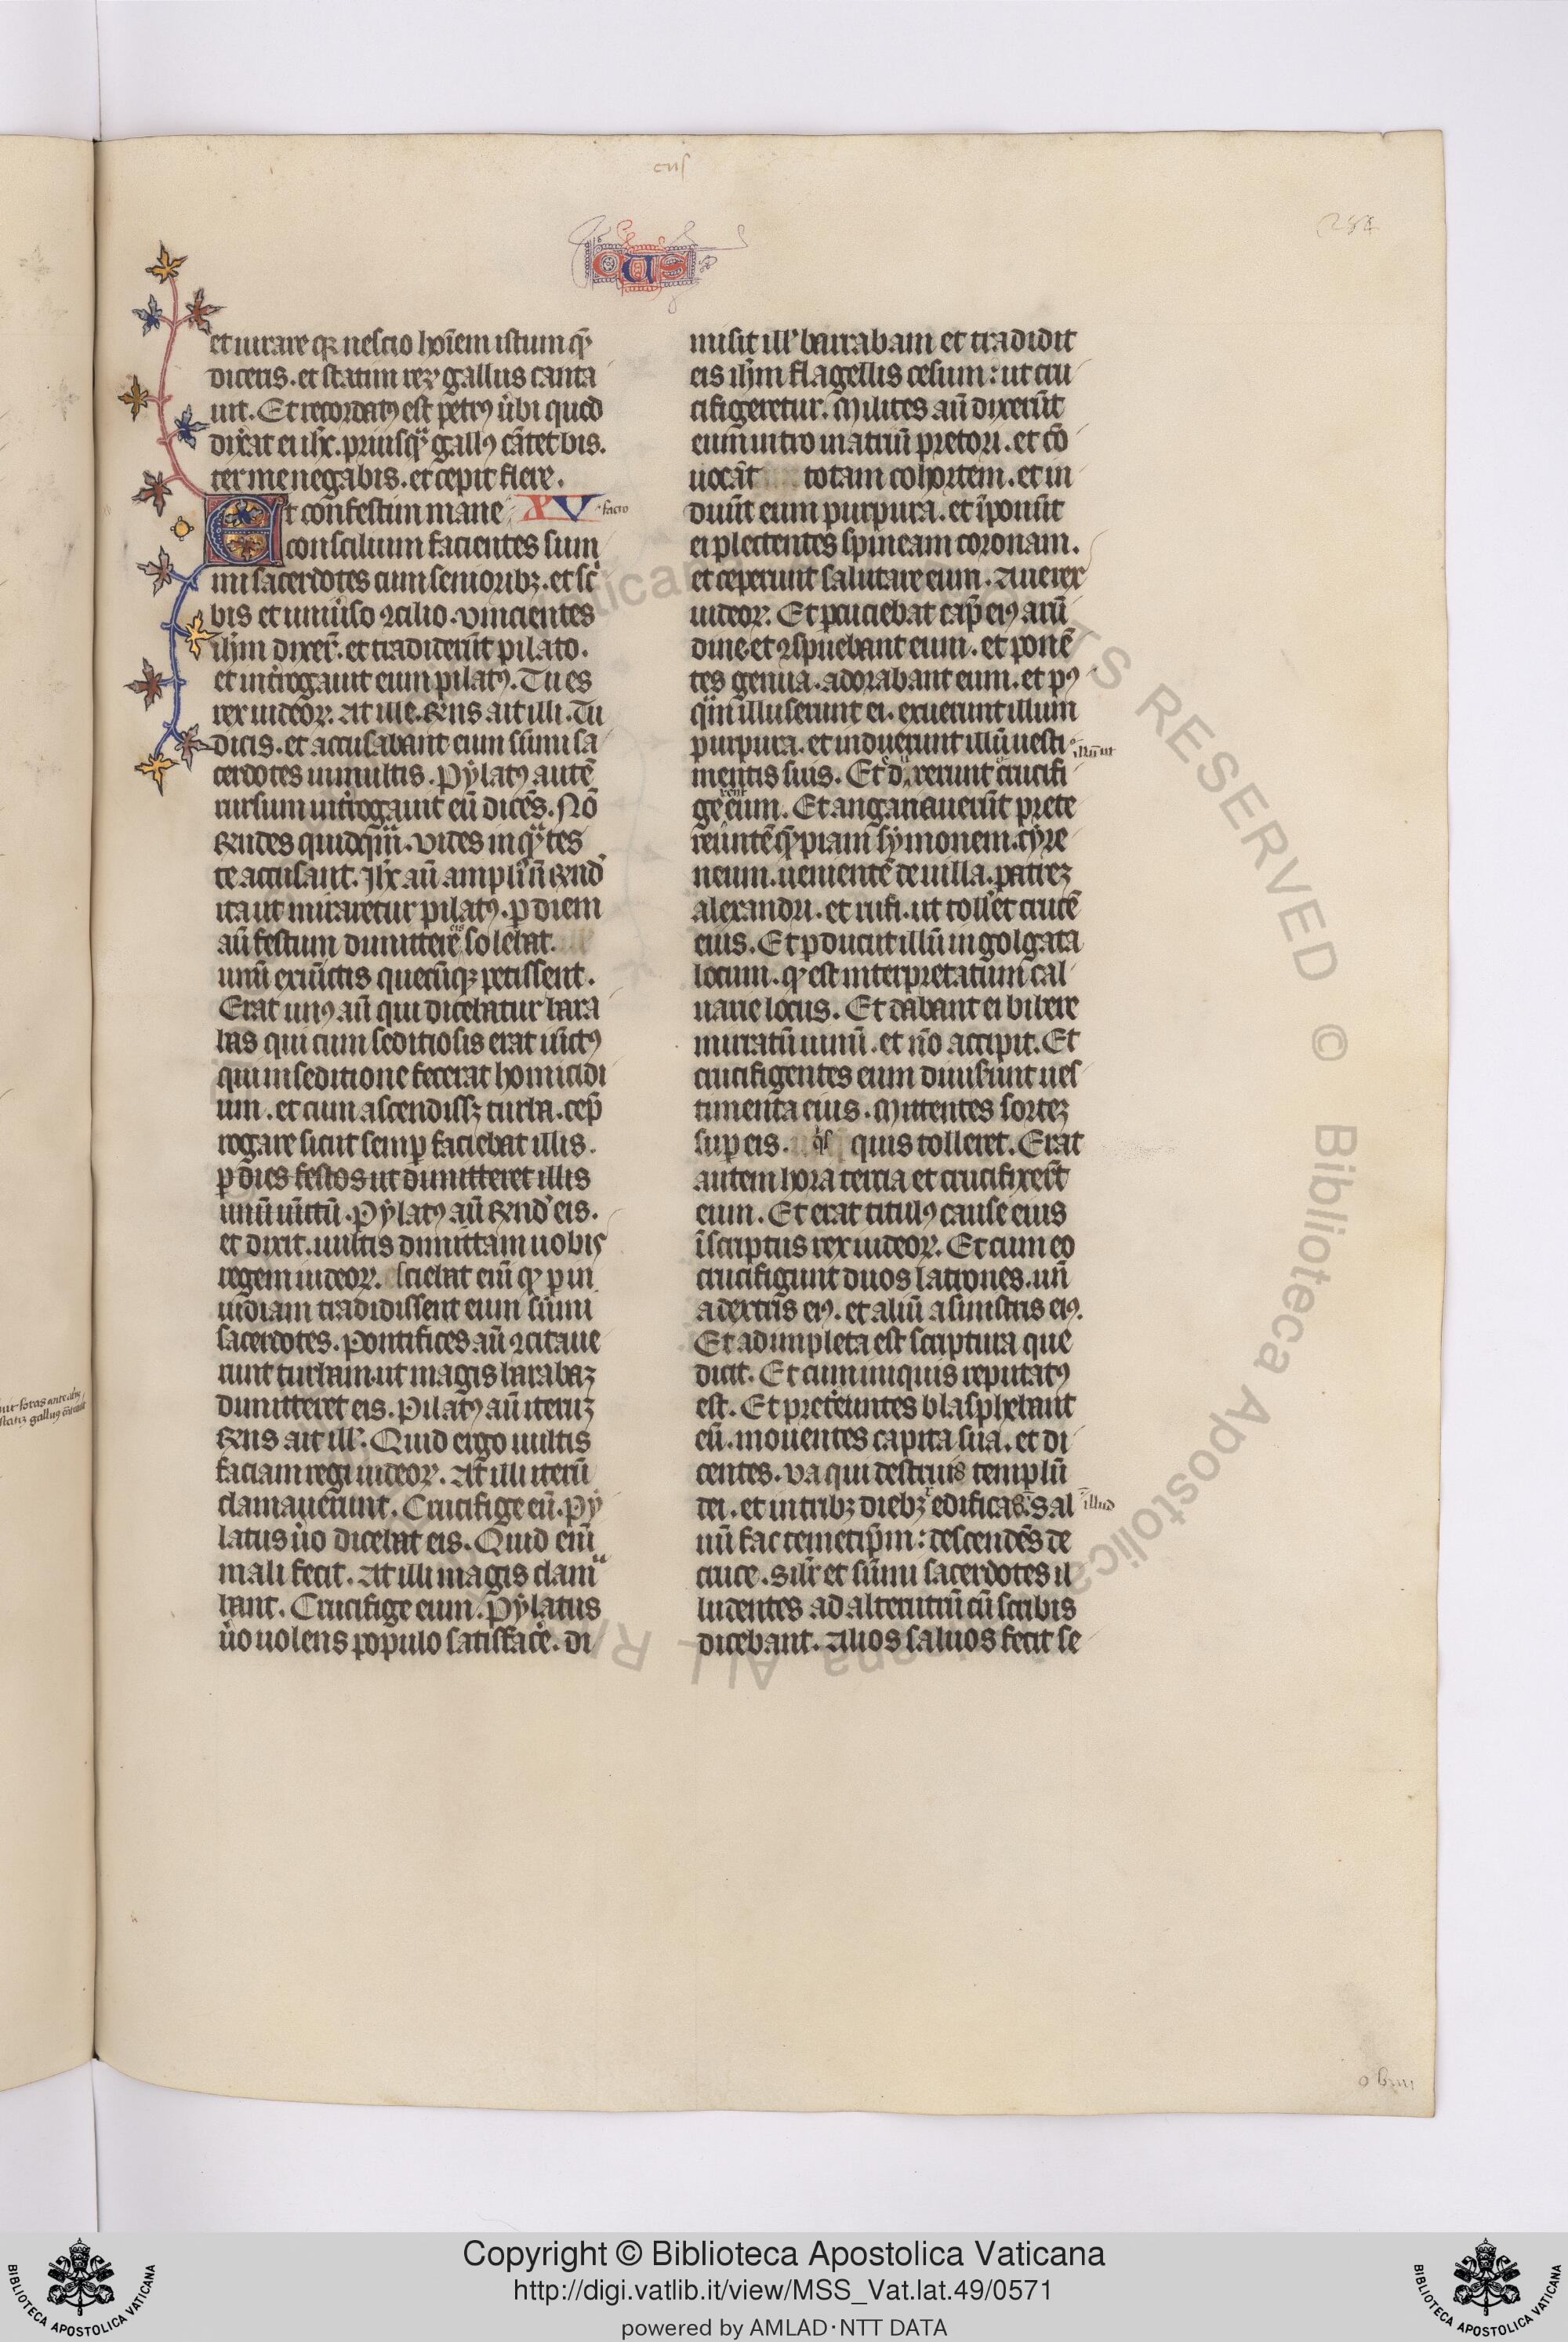 cus
CUS
284
et iurare q nescio hoīem istum q̄
dicetis. et statim rex gallus canta
uit. Et recordatꝰ est petrꝰ ubi quod
dixͣat ei ihc. priusqͣ gallꝰ cātet bis.
ter me negabis. et cepit flere.
Et confestim mane XV facto
consilium facientes sum
mi sacerdotes cum senioribꝫ. et scͥ
bis et uniuͥso ꝯcilio. vincientes
ihm̄ dixer̄. et tradiderūt pilato.
et intͥrogauit eum pilatꝰ. Tu es
rex iudeoꝝ. At ille. Rn̄s ait illi. Tu
dicis. et accusabant eum sūmi sa
cerdotes in multis. Pẏlatꝰ autē
rursum intͥrogauit eū dicēs. Nō
Rn̄des quidqͣm. vides in qͣtes
te accusant. Ihc aū ampliꝰ n̄ Rn̄d
ita ut miraretur pilatꝰ. ꝑ diem
aū festum dimittere eis solebat.
unū ex uīctis quecūqꝫ petissent.
Erat unꝰ aū qui dicebatur bara
bas qui cum seditiosis erat uīctꝰ
qui in seditione fecerat homicidi
um. et cum ascendissꝫ turba. cep̄
rogare sicut semꝑ faciebat illis.
ꝑ dies festos ut dimitteret illis
unū uīctū. Pẏlatꝰ aū Rn̄d eis.
et dixit. uultis dimittam uobis
regem iudeoꝝ. sciebat eni q ꝑ in
uidiam tradidissent eum sūmi
sacerdotes. Pontifices aū ꝯcitaue
runt turbam. ut magis barabaꝫ
dimitteret eis. Pilatꝰ aū iteruꝫ
Rn̄s ait illͥ. Quid ergo uultis
faciam regi iudeoꝝ. At illi iterū
clamauerunt. Crucifige eū. Pẏ
latus uͦo dicebat eis. Quid eni
mali fecit. At illi magis clamͣ
bant. Crucifige eum. Pẏlatus
uͦo uolens populo satisfacͤe. di
misit illͥ barrabam et tradidit
eis ihm̄ flagellis cesum: ut cru
cifigeretur. Milites aū dixerūt
eum intro in atriū pretorii. et cō
uocāt totam cohortem. et in
duūt eum purpura. et īponūt
ei plectentes spineam coronam.
et ceperunt salutare eum. Aue rex
iudeoꝝ. Et ꝑcuciebat cap̄ eiꝰ arū
dine. et ꝯspuebant eum. et ponē
tes genua. adorabant eum. et pꝰ
qͣm illuserunt ei. exuerunt illum
purpura. et induerunt illū uesti illū ut
mentis suis. Et dͧxerunt crucifi
gerent eum. Et angariauerūt prete
reūntē q̄piam sẏmonem. cẏre
neum. uenientē de uilla. patreꝫ
alexandri. et rufi. ut tollͤet crucē
eius. Et ꝑducūt illū in golgata
locum. q est interpretatum cal
uarie locus. Et dabant ei bibere
mirratū uinū. et nō accipit. Et
crucifigentes eum diuisūnt ues
timenta eius. Mittentes sorteꝫ
suꝑ eis. qͥs quis tolleret. Erat
autem hora tercia et crucifixerūt
eum. Et erat titulꝰ cause eius
īscriptus rex iudeoꝝ. Et cum eo
crucifigunt duos latrones. un̄
a dextris eiꝰ. et aliū a sinistris eiꝰ.
Et adimpleta est scriptura que
dicit. Et cum iniquis reputatꝰ
est. Et pretͤeuntes blasphebant
eū. mouentes capita sua. et di
centes. va qui destruis templū
dei. et in tribꝫ diebꝫ reedificas. Sal illud
uū fac temetip̄m: descendēs de
cruce. Silͥr et sūmi sacerdotes il
ludentes ad alterutrū cū scribis
dicebant. Alios saluos fecit se
Copyright © Biblioteca Apostolica Vaticana
http://digi.vatlib.it/view/MSS_Vat.lat.49/0571
powered by AMLAD·NTT DATA